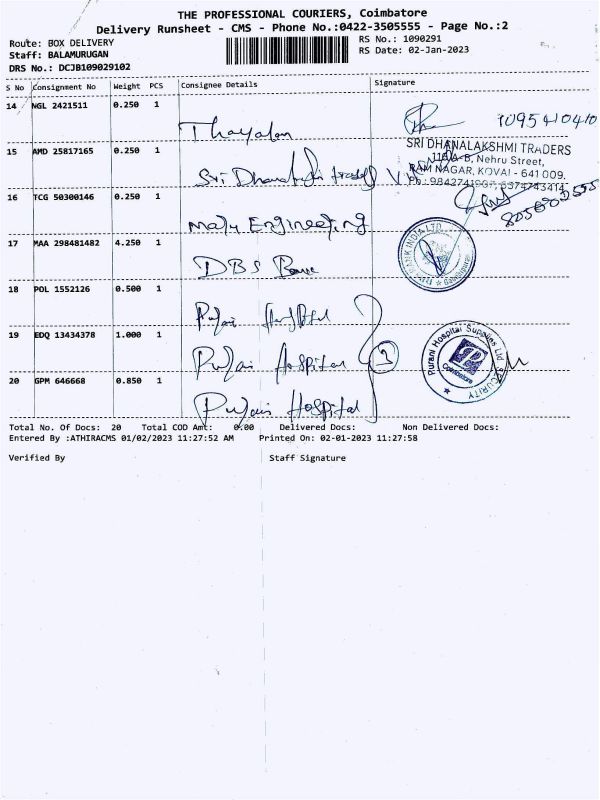 THE PROFESSIONAL COURIERS, Coimbatore
Delivery Runsheet - CMS - Phone No.:0422-3505555 - Page No.:2
Route: BOX DELIVERY
RS No.: 1090291
Staff: BALAMURUGAN
RS Date: 02-Jan-2023
DRS No.: DCJB109029102
S No Consignment No Weight PCS Consignee Details Signature
14 NGL 2421511 0.250 1
Thayalan
15 AMD 25817165 0.250 1
SRI DHANALAKSHMI TRADERS
116/A-B, Nehru Street,
RAM NAGAR, KOVAI - 641 009.
Sri Dhanalakshmi traders
16 TCG 50300146 0.250 1
Engineering
17 MAA 298481482 4.250 1
DBS
18 POL 1552126 0.500 1
Hospital
19 EDQ 13434378 1.000 1
Hospital
3
Purani Hospital Supplies Ltd
Coimbatore
SECURITY
20 GPM 646668 0.850 1
Hospital
Total No. Of Docs: 20 Total COD Amt: 0.00 Delivered Docs: Non Delivered Docs:
Entered By :ATHIRACMS 01/02/2023 11:27:52 AM Printed On: 02-01-2023 11:27:58
Verified By Staff Signature